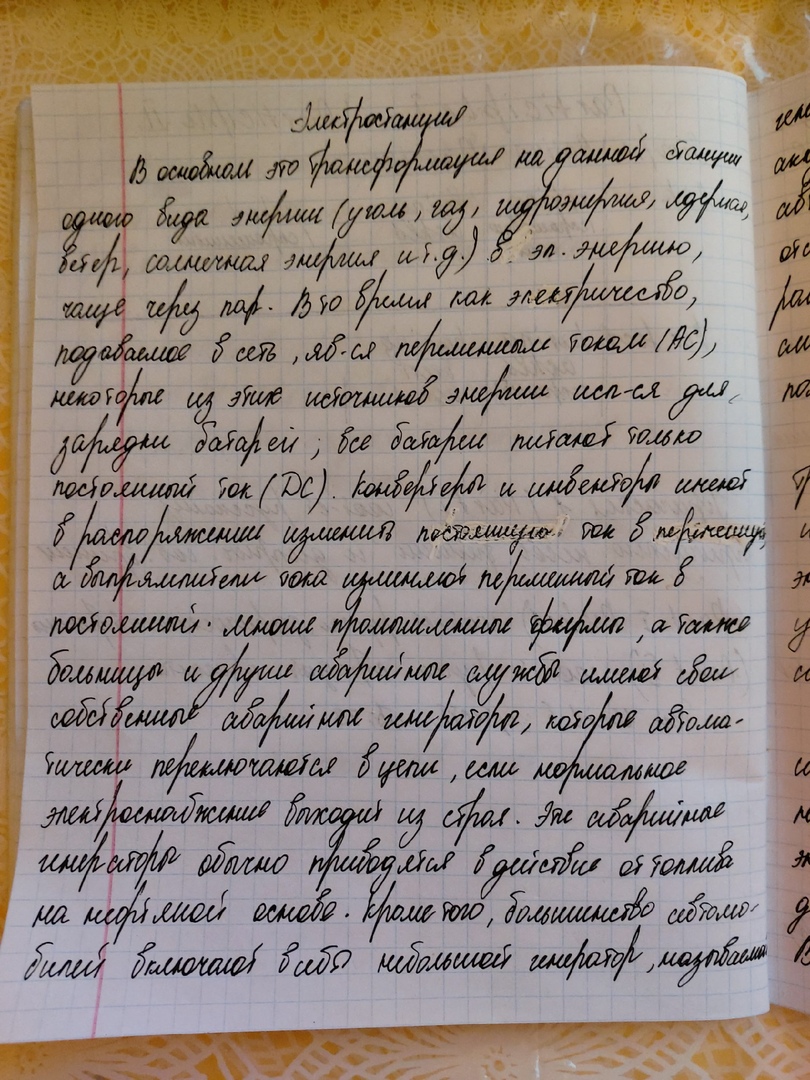 Электростанция
В основном это трансформация на данной станции
одного вида энергии (уголь, газ, гидроэнергия, ядерная,
ветер, солнечная энергия и т.д.) в эл. энергию,
чаще через пар. В то время как электричество,
подаваемое в сеть, яв-ся переменным током (АС),
некоторые из этих источников энергии исп-ся для
зарядки батарей; все батареи питают только
постоянный ток (DC). Конвертеры и инвенторы имеют
в распоряжении изменить постоянную ток в переменную,
а выпрямители тока изменяют переменный ток в
постоянный. Многие промышленные фирмы, а также
больницы и другие аварийные службы имеют свои
собственные аварийные генераторы, которые автома-
тически переключаются в цепи, если нормальное
электроснабжение выходит из строя. Эти аварийные
генераторы обычно приводятся в действие от топлива
на нефтяной основе. Кроме того, большинство автомо-
билей включают в себя небольшой генератор,
ген
от